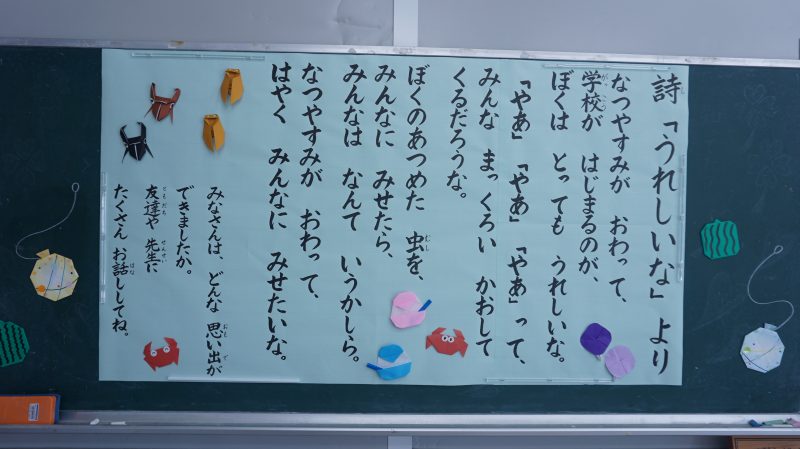 詩「うれしいな」より
なつやすみが おわって、
学校が はじまるのが、
ぼくは とっても うれしいな。
「やあ」「やあ」「やあ」って、
みんな まっくろい かおして
くるだろうな。
ぼくのあつめた 虫を、
みんなに みせたら、
みんなは なんて いうかしら。
なつやすみが おわって、
はやく みんなに みせたいな。
みなさんは、どんな 思い出が
できましたか。
友達や 先生に
たくさん お話ししてね。